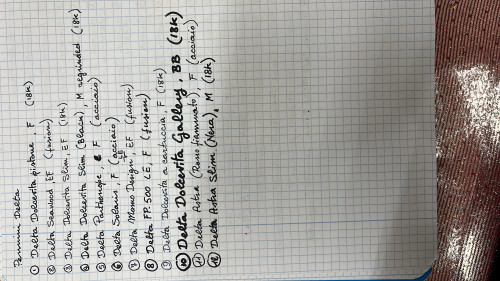 Pennini Delta
① Delta Dolcevita pistone, F (18k)
② Delta Seawood EF (fusion)
③ Delta Dolcevita Slim, EF (18k)
④ Delta Dolcevita Slim (Black), M regrinded (18k)
⑤ Delta Partenope, F (acciaio)
⑥ Delta Solaris, F (acciaio) EB
⑦ Delta Momo Design, EF (fusion)
⑧ Delta FP.500 LE, F (fusion)
⑨ Delta Dolcevita a cartuccia, F (18k)
⑩ Delta Dolcevita Gallery, BB (18k)
⑪ Delta Astra (Rosso fiammato), F (acciaio)
⑫ Delta Astra Slim (Nera), M (18k)